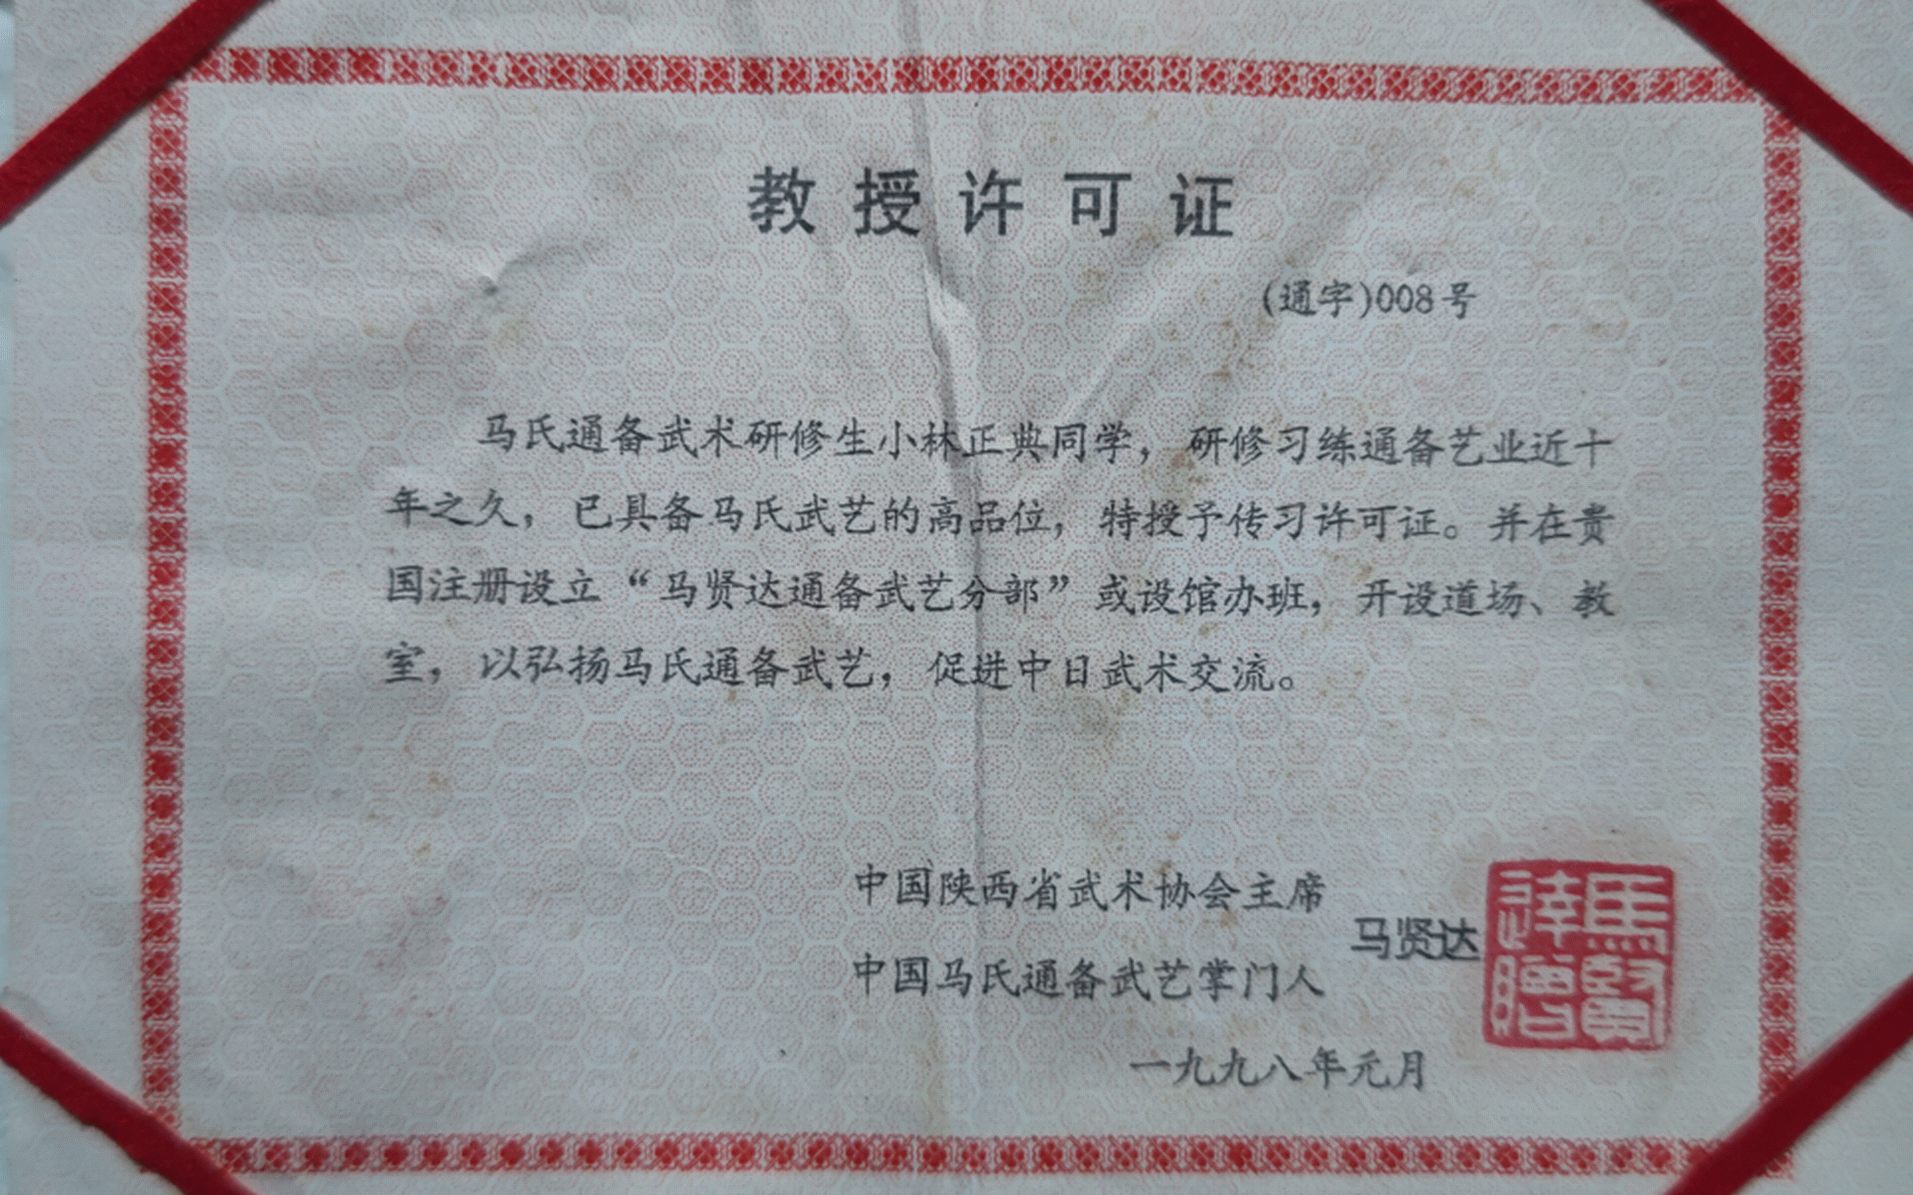 教授许可证
(通字)008号
马氏通备武术研修生小林正典同学，研修习练通备艺业近十
年之久，已具备马氏武艺的高品位，特授予传习许可证。并在贵
国注册设立“马贤达通备武艺分部”或设馆办班，开设道场、教
室，以弘扬马氏通备武艺，促进中日武术交流。
中国陕西省武术协会主席
马贤达
中国马氏通备武艺掌门人
一九九八年元月
馬賢達贈